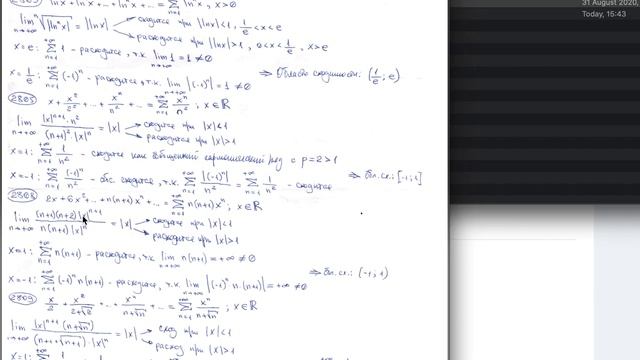 ln x + ln²x + ... + lnⁿx + ... = Σ_{n=1}^{+∞} lnⁿx, x>0
lim_{n→+∞} ⁿ√|lnⁿx| = |ln x| сходится при |ln x|<1, 1/e<x<e
расходится при |ln x|>1, 0<x<1/e, x>e
x=e: Σ_{n=1}^{+∞} 1 - расходится, т.к. lim_{n→+∞} 1 = 1 ≠ 0
x=1/e: Σ_{n=1}^{+∞} (-1)ⁿ - расходится, т.к. lim_{n→+∞} |(-1)ⁿ| = 1 ≠ 0 ⇒ Область сходимости: (1/e; e)
2805 x + x²/2² + ... + xⁿ/n² + ... = Σ_{n=1}^{+∞} xⁿ/n²; x∈ℝ
lim_{n→+∞} |x|ⁿ⁺¹·n²/((n+1)²·|x|ⁿ) = |x| сходится при |x|<1
расходится при |x|>1
x=1: Σ_{n=1}^{+∞} 1/n² - сходится как обобщенный гармонический ряд с p=2>1
x=-1: Σ_{n=1}^{+∞} (-1)ⁿ/n² - абс. сходится, т.к. Σ_{n=1}^{+∞} |(-1)ⁿ/n²| = Σ_{n=1}^{+∞} 1/n² - сходится ⇒ Обл. сх.: [-1; 1]
2808 2x + 6x² + ... + n(n+1)xⁿ + ... = Σ_{n=1}^{+∞} n(n+1)xⁿ; x∈ℝ
lim_{n→+∞} (n+1)(n+2)|x|ⁿ⁺¹/(n(n+1)|x|ⁿ) = |x| сходится при |x|<1
расходится при |x|>1
x=1: Σ_{n=1}^{+∞} n(n+1) - расходится, т.к. lim_{n→+∞} n(n+1) = +∞ ≠ 0
x=-1: Σ_{n=1}^{+∞} (-1)ⁿ n(n+1) - расходится, т.к. lim_{n→+∞} |(-1)ⁿ n·(n+1)| = +∞ ≠ 0 ⇒ Обл. сх.: (-1; 1)
2809 x/2 + x²/(2+√2) + ... + xⁿ/(n+√n) + ... = Σ_{n=1}^{+∞} xⁿ/(n+√n); x∈ℝ
lim_{n→+∞} |x|ⁿ⁺¹(n+√n)/((n+1+√(n+1))·|x|ⁿ) = |x| сход при |x|<1
расход при |x|>1
31 August 2020,
Today, 15:43